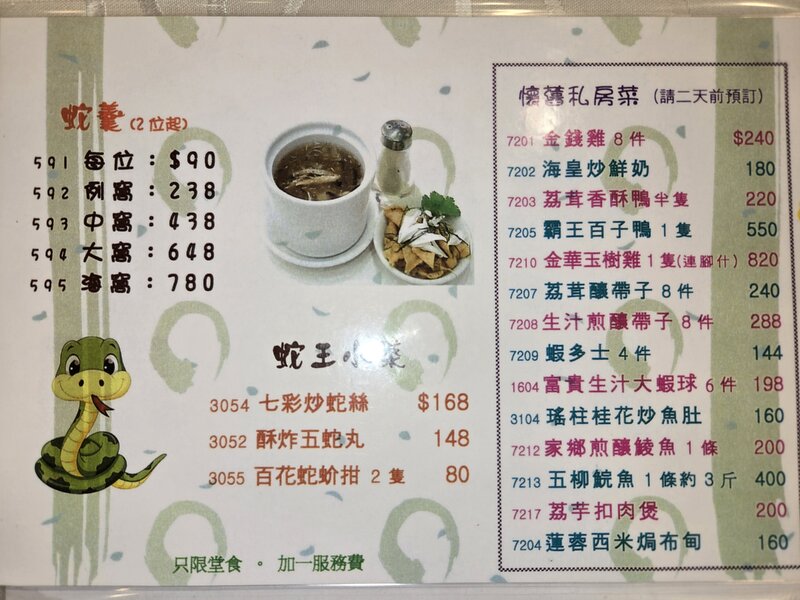 蛇羹 (2位起)
591 每位：$90
592 例窩：238
593 中窩：438
594 大窩：648
595 海窩：780
蛇王小菜
3054 七彩炒蛇絲 $168
3052 酥炸五蛇丸 148
3055 百花蛇蚧拑 2 隻 80
只限堂食 。 加一服務費
懷舊私房菜 (請二天前預訂)
7201 金錢雞 8 件 $240
7202 海皇炒鮮奶 180
7203 荔茸香酥鴨半隻 220
7205 霸王百子鴨 1 隻 550
7210 金華玉樹雞 1 隻(連腳什) 820
7207 荔茸釀帶子 8 件 240
7208 生汁煎釀帶子 8 件 288
7209 蝦多士 4 件 144
1604 富貴生汁大蝦球 6 件 198
3104 瑤柱桂花炒魚肚 160
7212 家鄉煎釀鯪魚 1 條 200
7213 五柳鯇魚 1 條約 3 斤 400
7217 荔芋扣肉煲 200
7204 蓮蓉西米焗布甸 160